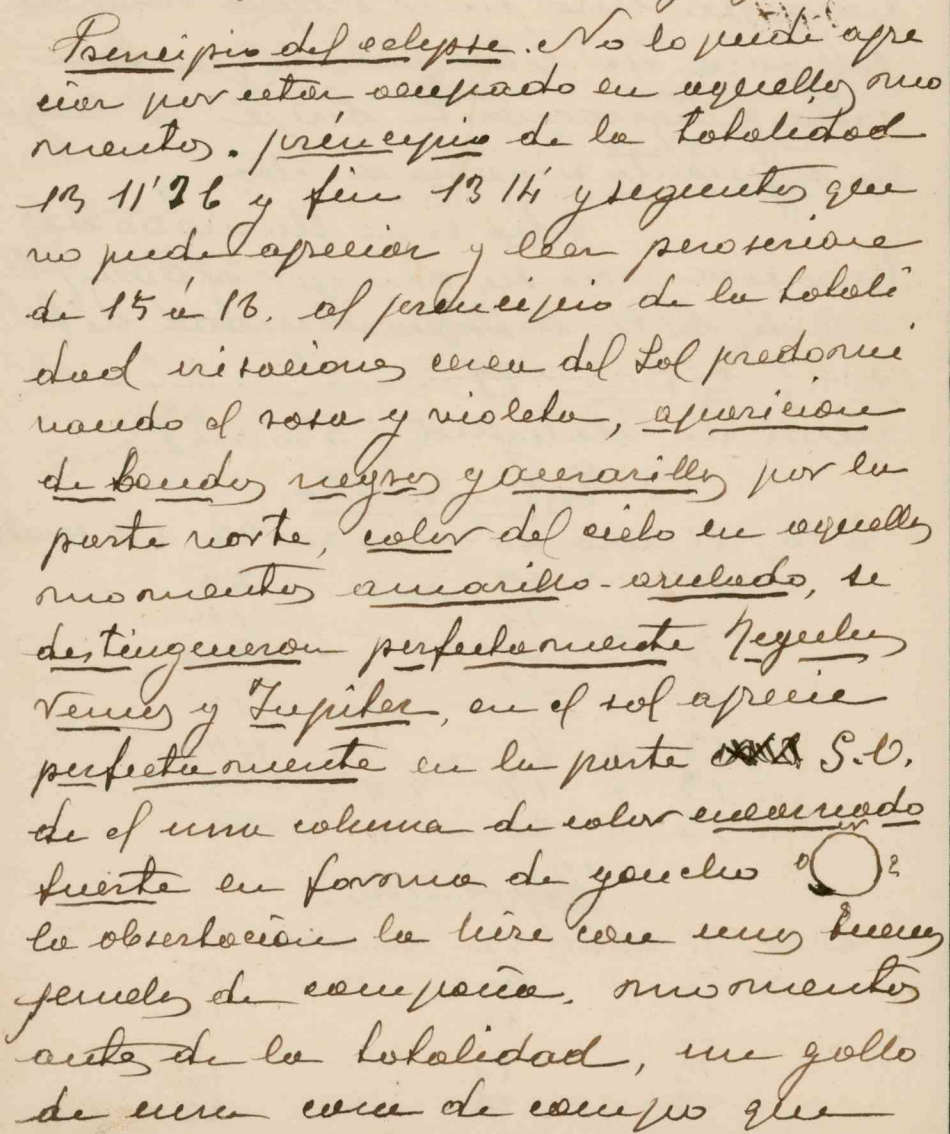 Principio del eclypse. No lo pude apre
ciar por estar ocupado en aquellos mo
mentos. principio de la totalidad
13 11' 26 y fin 13 14' y segundos que
no pude apreciar y leer pero serian
de 15 á 18. al principio de la totali
dad irisaciones cerca del Sol predomi
nando el rosa y violeta, aparicion
de bandas negras y amarillas por la
parte norte, color del cielo en aquellos
momentos amarillo-azulado, se
distinguieron perfectamente Regulus
Venus y Jupiter, en el sol aprecie
perfectamente en la parte S.O.
de el una columna de color encarnado
fuerte en forma de gancho
la obserbacion la hize con unos buenos
jemelos de campaña. momentos
antes de la totalidad, un gallo
de una casa de campo que